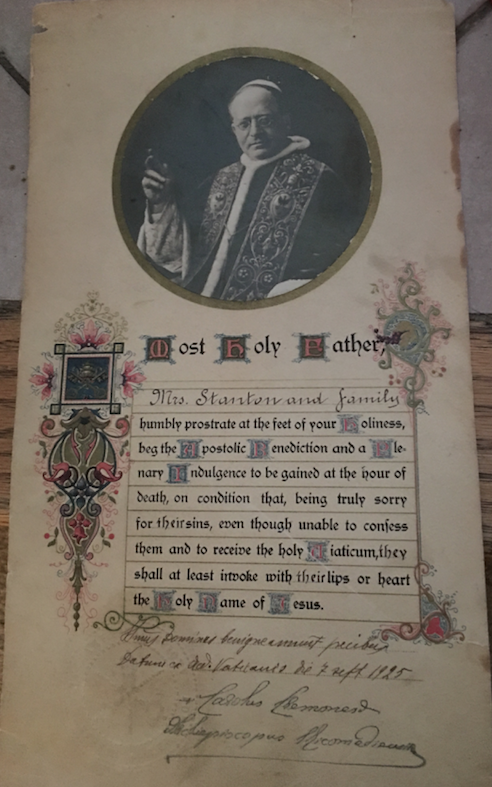 Most Holy Father,
Mrs. Stanton and family
humbly prostrate at the feet of your Holiness,
beg the Apostolic Benediction and a Ple-
nary Indulgence to be gained at the hour of
death, on condition that, being truly sorry
for their sins, even though unable to confess
them and to receive the holy Viaticum, they
shall at least invoke with their lips or heart
the Holy Name of Jesus.
benigne annuit precibus
Vaticanis die 7 sept 1925
Carolus Cremonesi
Archiepiscopus Nicomediensis